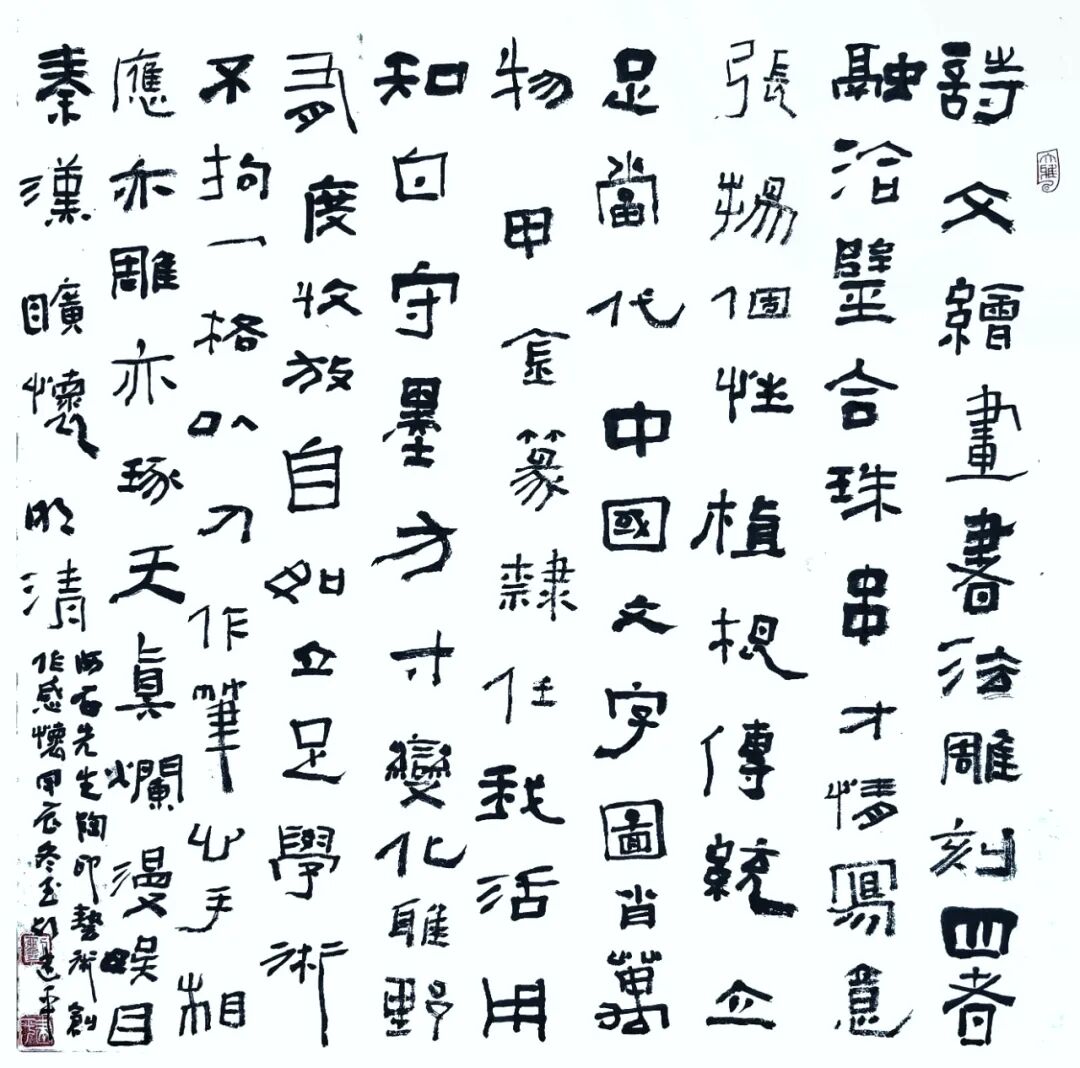 詩文繪畫書法雕刻四者
融洽璧合珠串才情寫意
張揚個性植根傳統立
足當代中國文字圖肖萬
物甲金篆隸任我活用
知白守墨方寸變化雅野
有度收放自如立足學術
不拘一格以刀作筆心手相
應亦雕亦琢天真爛漫娛目
秦漢曠懷明清
石先生陶印藝術創
作感懷甲辰冬至建平